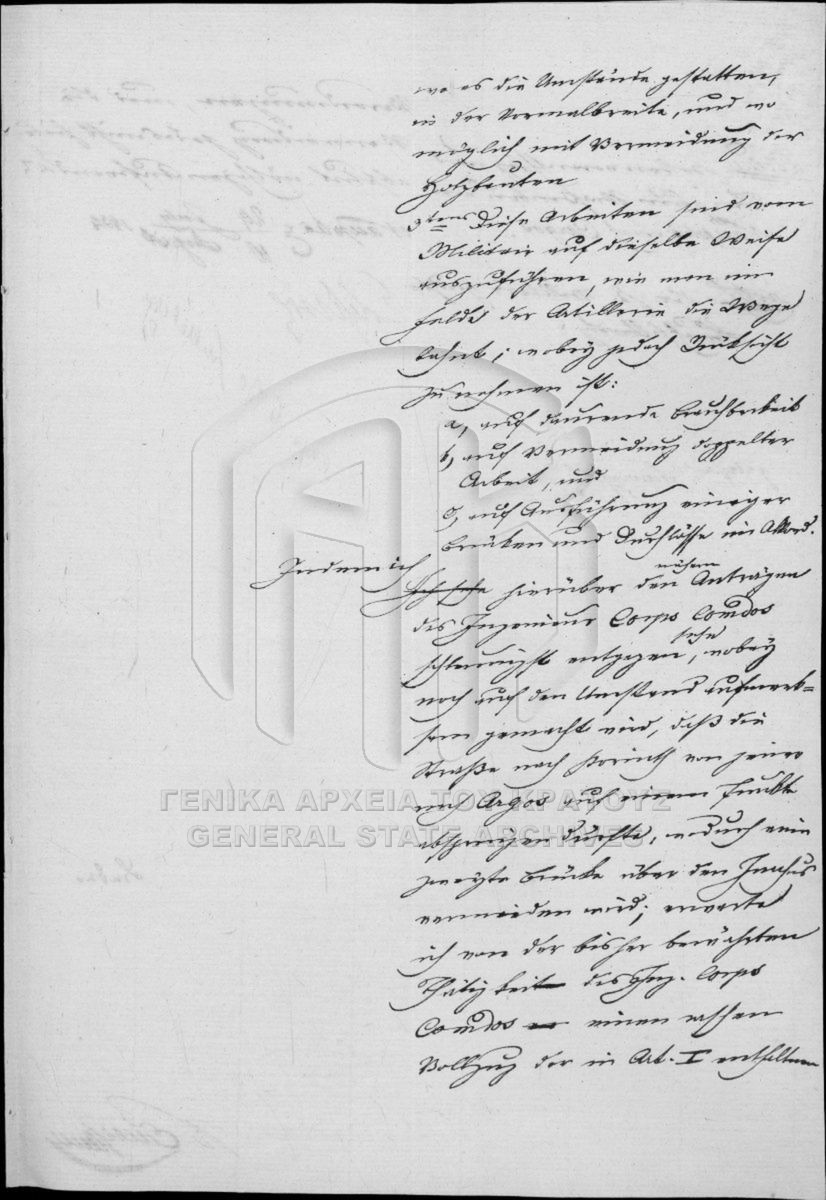 wo es die Umstände gestatten,
in der Normalbreite, und wo
möglich mit Vermeidung der
Holzbauten
3tens Diese Arbeiten sind vom
Militair auf dieselbe Weise
auszuführen, wie man im
Felde der Artillerie die Wege
bahnt; wobey jedoch Rüksicht
zu nehmen ist:
a, auf daurende Brauchbarkeit
b, auf Vermeidung doppelter
Arbeit, und
c, auf Ausführung einiger
Brüken und Durchlässe im Akkord.
Indem ich
Ich sehe hierüber den nähern Anträgen
des Ingenieur Corps Comdos
schleunigst entgegen sehe, wobey
noch auf den Umstand aufmerk=
sam gemacht wird, daß die
Straße nach Korinth von jener
nach Argos auf einem Punkte
abspringen dürfte, wodurch eine
zweyte Brücke über den Inachus
vermieden wird; erwarte
ich von der bisher bewährten
Thätigkeit des Ing. Corps
Comdos einen raschen
Vollzug der in Art. I enthaltenen
ΓΕΝΙΚΑ ΑΡΧΕΙΑ ΤΟΥ ΚΡΑΤΟΥΣ
GENERAL STATE ARCHIVES